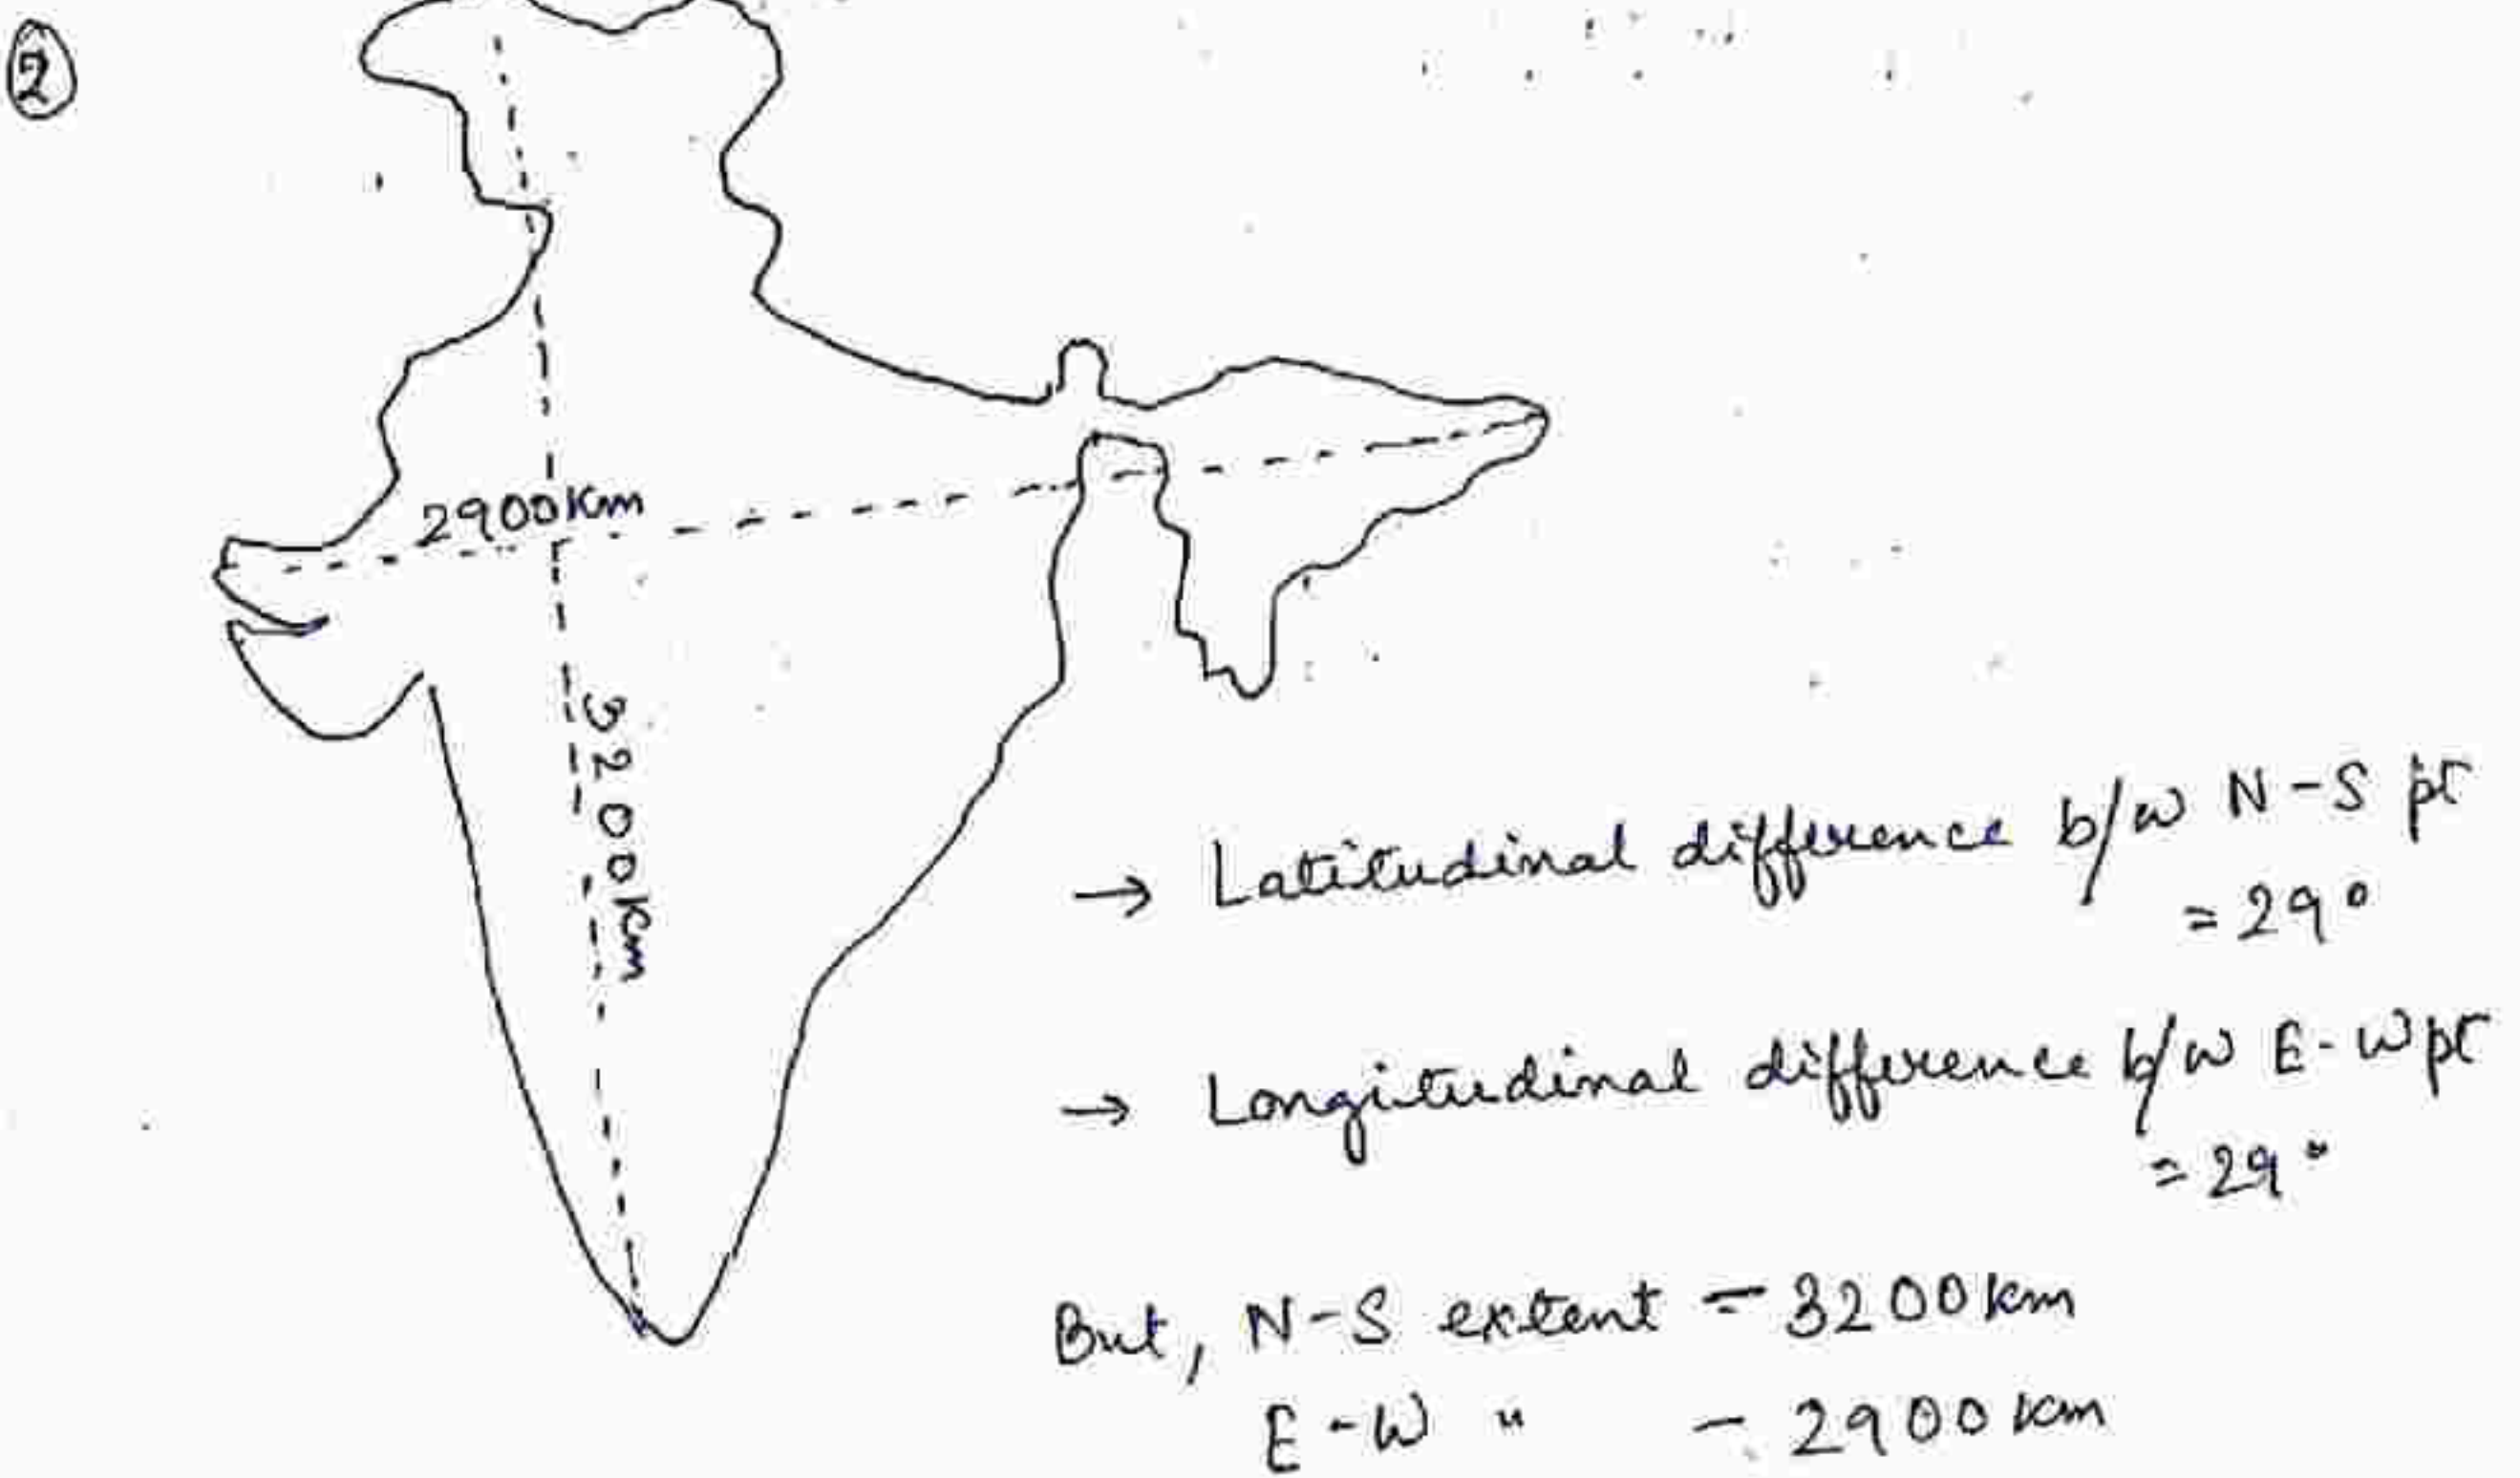 ②
2900 Km
3200 Km
→ Latitudinal difference b/w N-S pt
= 29°
→ Longitudinal difference b/w E-W pt
= 29°
But, N-S extent = 3200 km
E-W " - 2900 km